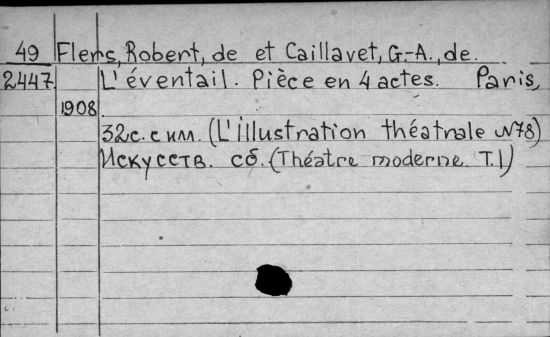 49 Flers, Robert, de et Caillavet, G.-A., de.
2447. L'éventail. Pièce en 4 actes. Paris,
1908
32с. с илл. (L'illustration théatrale №78)
Искусств. сб. (Théatre moderne. T.1)